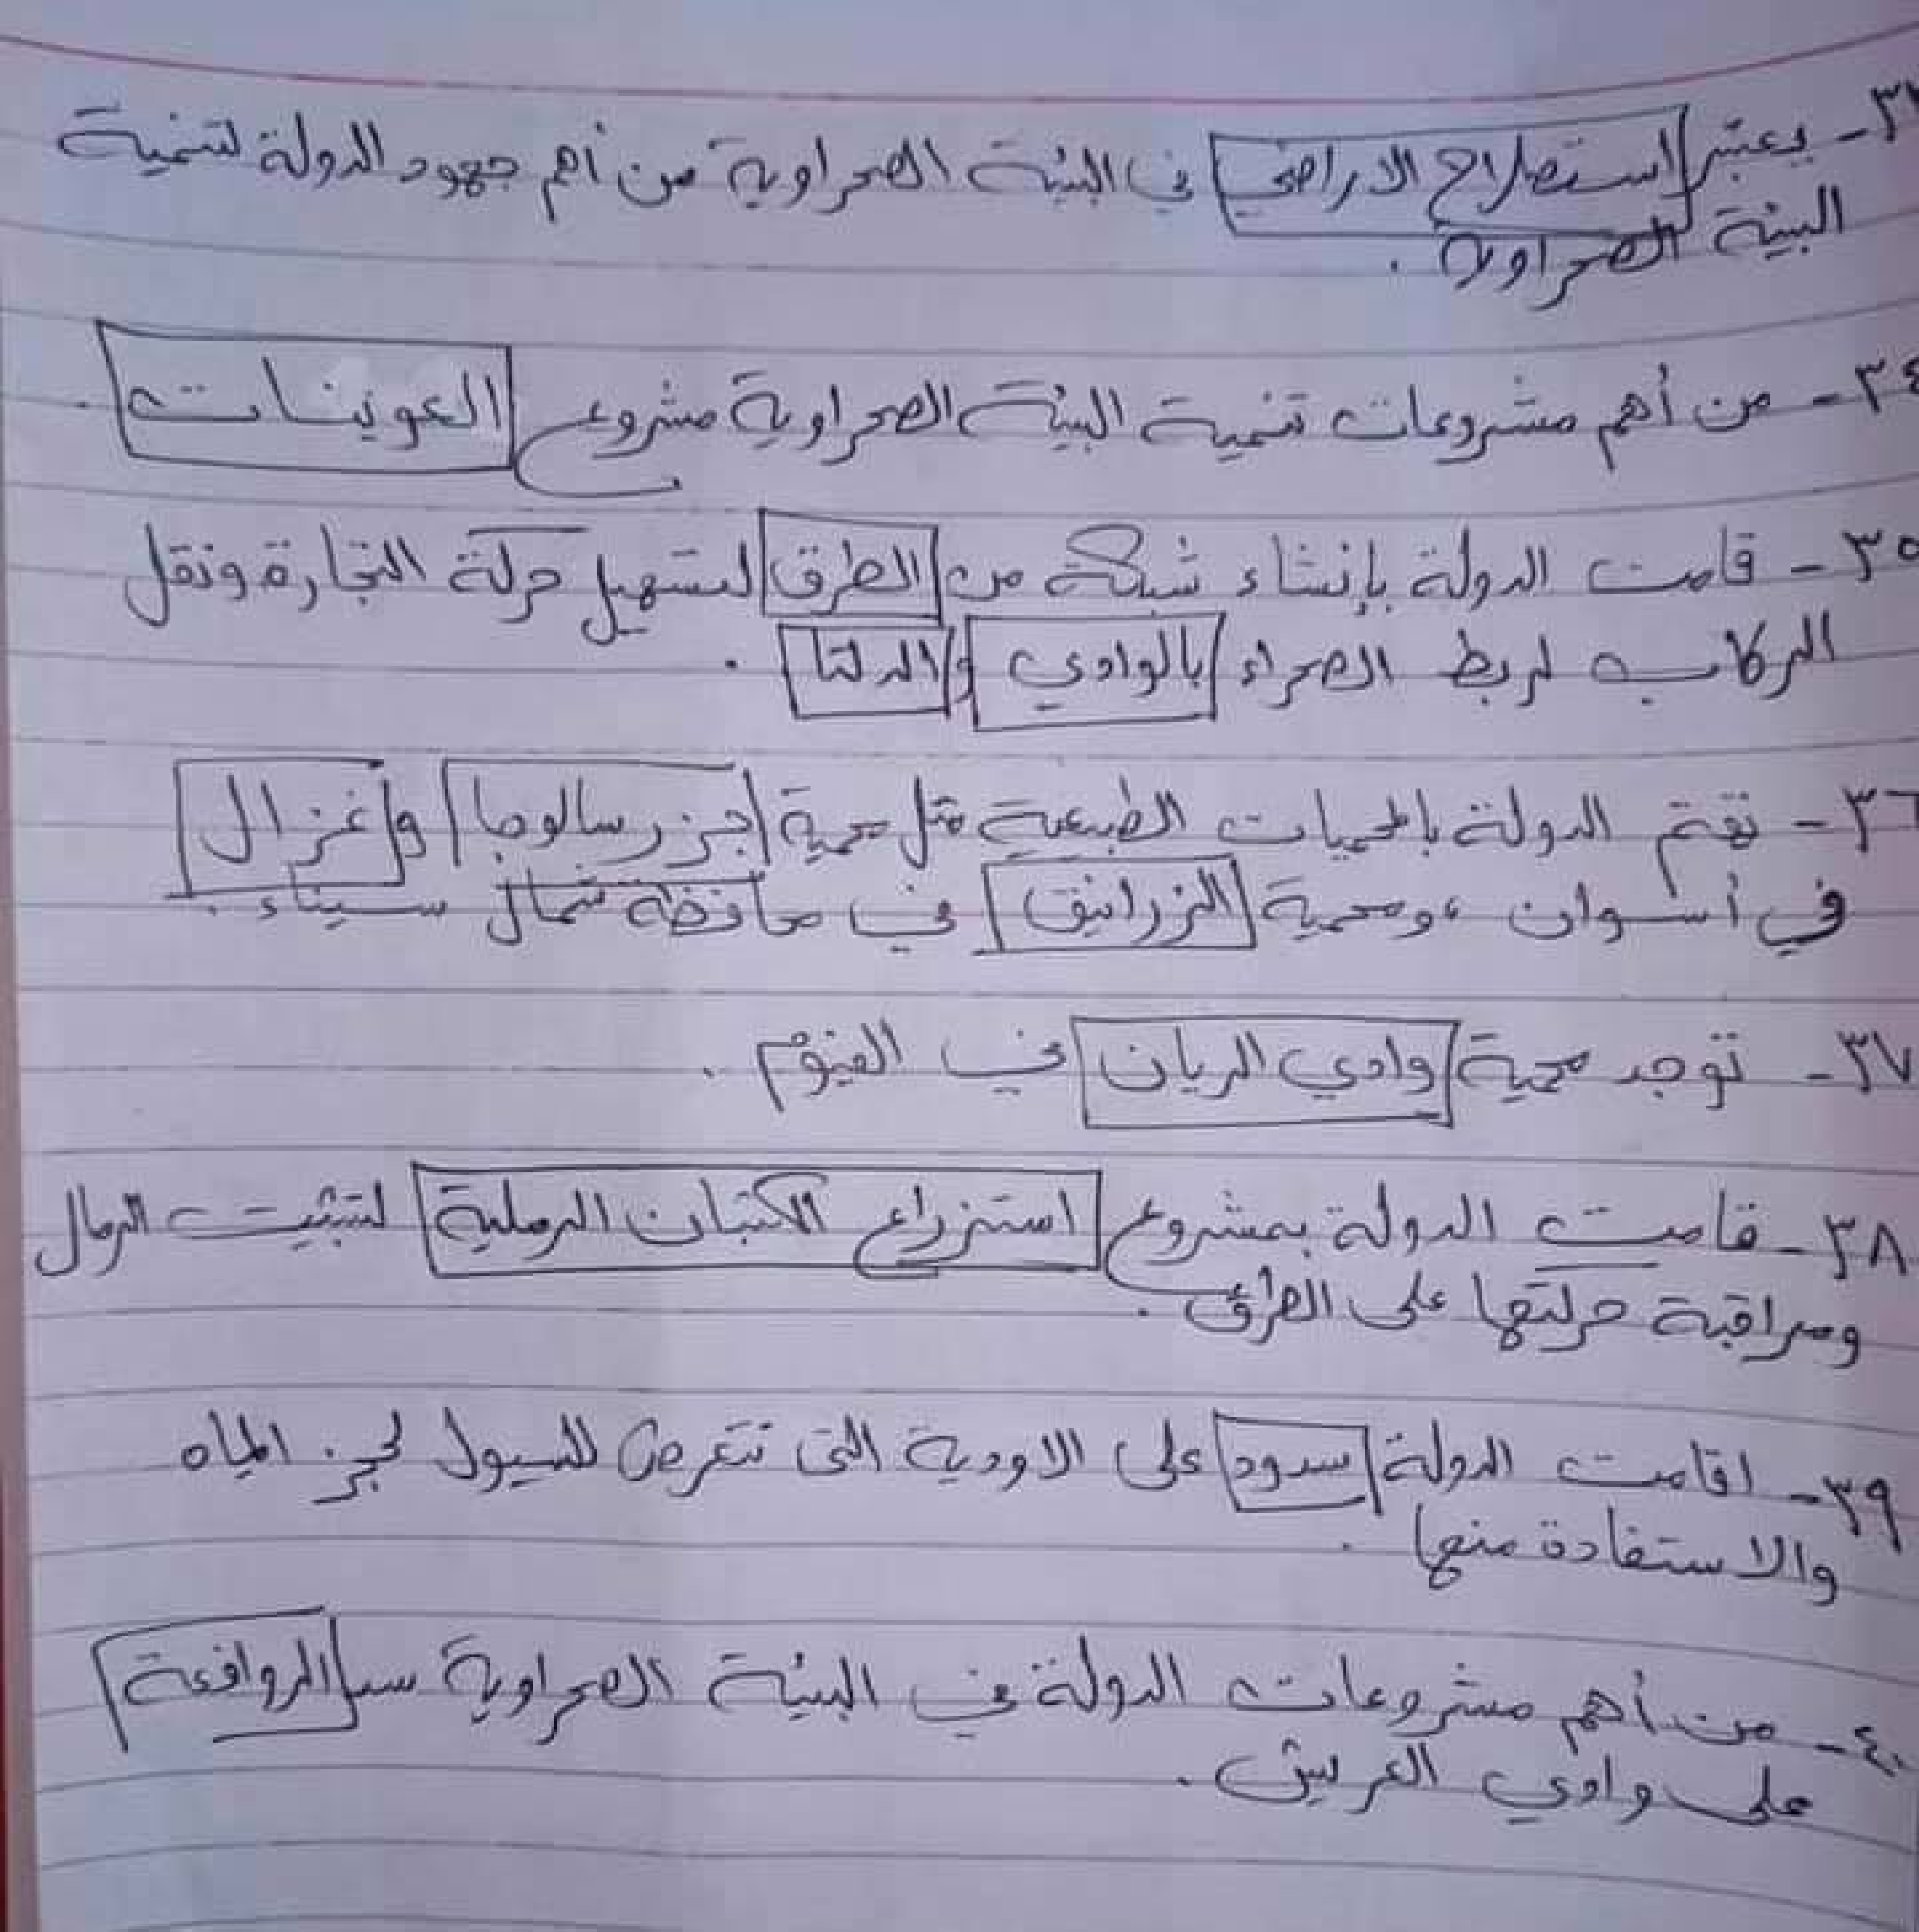 ٣٣- يعتبر استصلاح الاراضي في البيئة الصحراوية من أهم جهود الدولة لتنمية
البيئة الصحراوية .
٣٤- من أهم مشروعات تنمية البيئة الصحراوية مشروع العوينات .
٣٥- قامت الدولة بإنشاء شبكة من الطرق لتسهيل حركة التجارة ونقل
الركاب لربط الصحراء بالوادي والدلتا .
٣٦- تهتم الدولة بالمحميات الطبيعية مثل محمية جزر سالوجا وغزال
في أسوان ، ومحمية الزرانيق في محافظة شمال سيناء .
٣٧- توجد محمية وادي الريان في الفيوم .
٣٨- قامت الدولة بمشروع استزراع الكثبان الرملية لتثبيت الرمال
ومراقبة حركتها على الطرق .
٣٩- اقامت الدولة سدود على الاودية التى تتعرض للسيول لحجز المياه
والاستفادة منها .
٤٠- من أهم مشروعات الدولة في البيئة الصحراوية سد الروافعة
على وادي العريش .